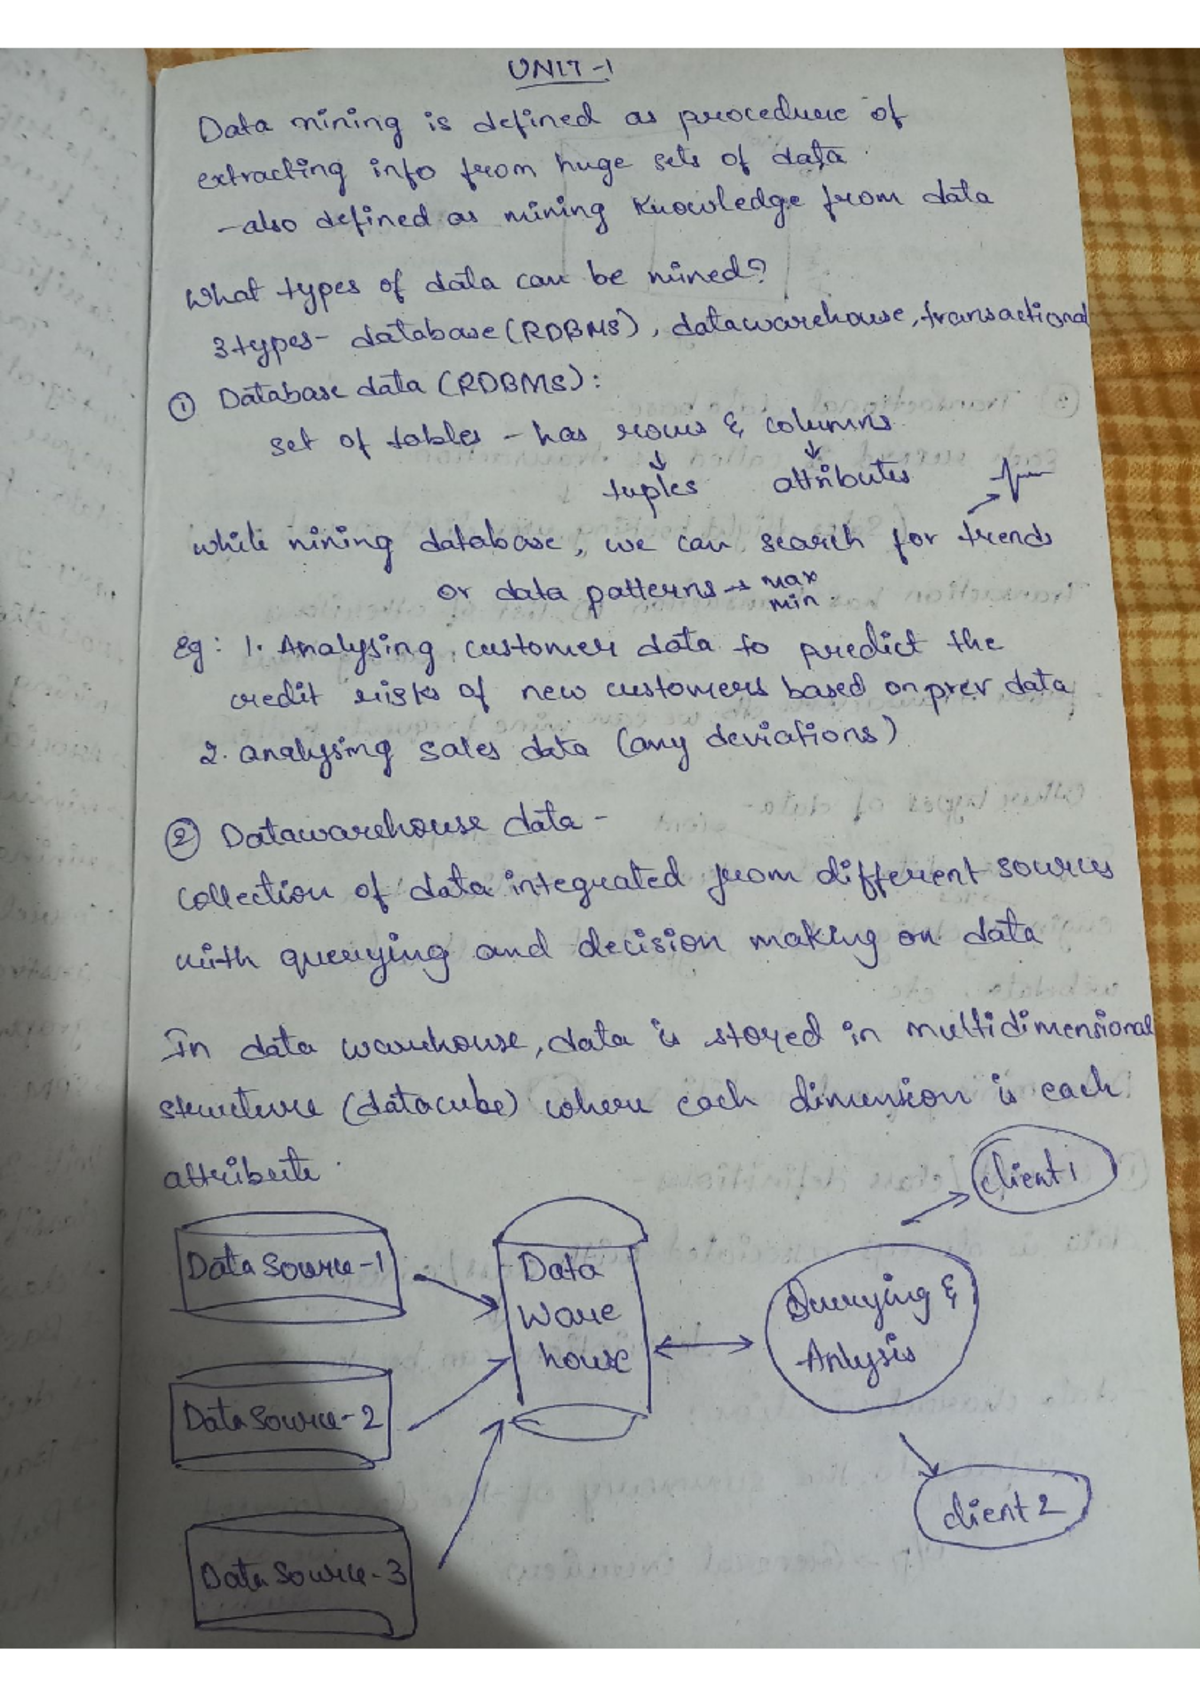 UNIT-1
Data mining is defined as procedure of
extracting info from huge sets of data.
-also defined as mining Knowledge from data
What types of data can be mined?
3 types- database (RDBMS), datawarehouse, transactional
① Database data (RDBMS):
set of tables - has rows & columns
↓ ↓
tuples attributes
while mining database, we can search for trends
or data patterns → max
min
Eg: 1. Analysing customer data to predict the
credit risks of new customers based on prev data
2. analysing sales data (any deviations)
② Datawarehouse data -
collection of data integrated from different sources
with querying and decision making on data
In data warehouse, data is stored in multidimensional
structure (datacube) where each dimension is each
attribute.
client 1
Data Source-1
Data
Ware
house
Querying &
Anlysis
Data Source-2
client 2
Data Source-3